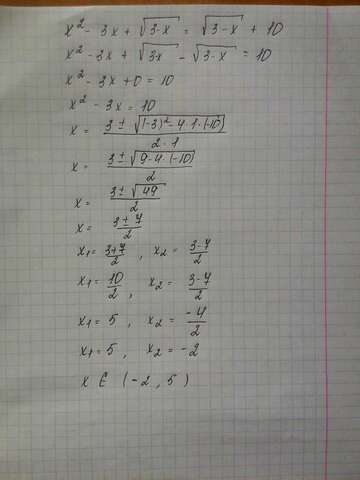 x² - 3x + √3-x = √3-x + 10
x² - 3x + √3x - √3-x = 10
x² - 3x + 0 = 10
x² - 3x = 10
x = (3 ± √(-3)² - 4·1·(-10)) / 2·1
x = (3 ± √9-4·(-10)) / 2
x = (3 ± √49) / 2
x = (3 ± 7) / 2
x₁ = (3+7)/2 , x₂ = (3-7)/2
x₁ = 10/2 , x₂ = (3-7)/2
x₁ = 5 , x₂ = -4/2
x₁ = 5 , x₂ = -2
x ∈ (-2 , 5)